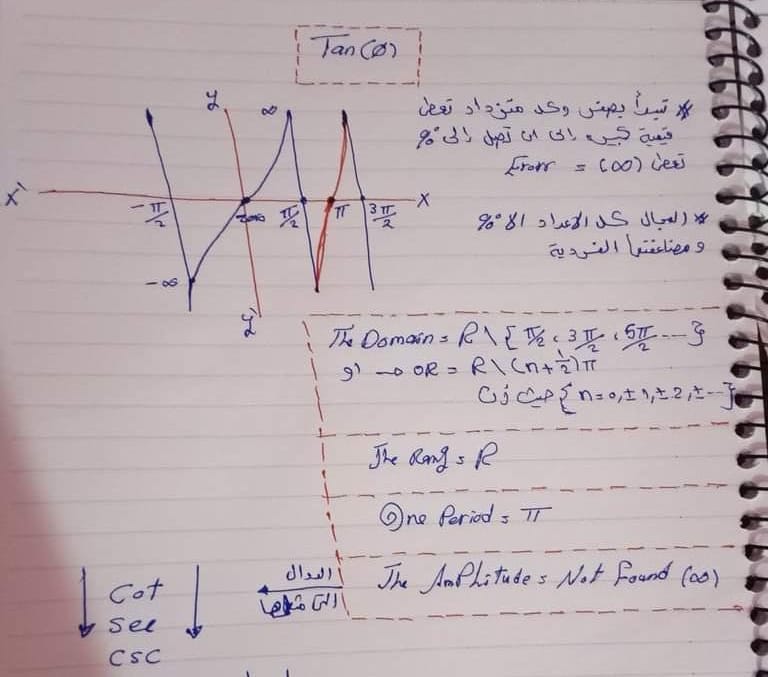 Tan(Ø)
y
∞
X`
X
-π/2
zero
π/2
π
3π/2
-∞
y`
* تبدأ بصفر وكد متزداد تعطي
قيمة الى ان تصل الى 90°
تعطي (∞) = Erorr
* المجال كل الاعداد الا 90°
ومضاعفتها الفردية
The Domain = R \ { π/2 , 3π/2 , 5π/2 ---- }
او → OR = R \ (n+1/2)π
حيث ان { n=0,±1,±2,±--- }
The Rang = R
One Period = π
The Amplitude = Not Found (∞)
الدوال
التي مثلها
Cot
Sec
CSC